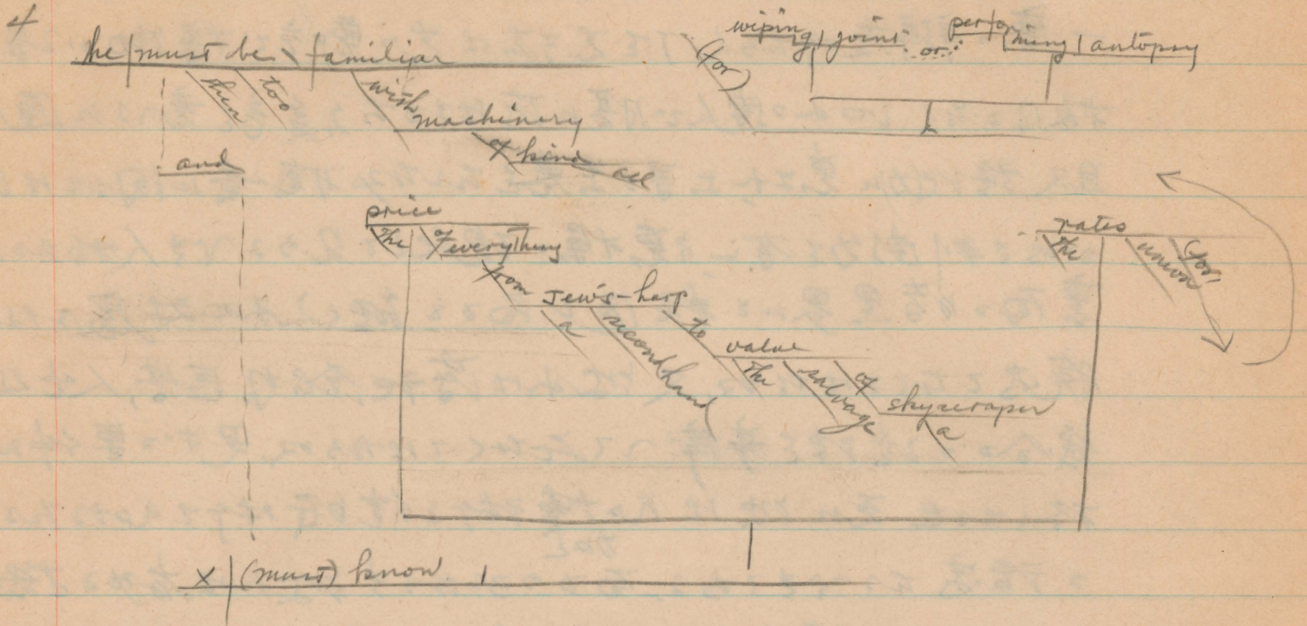 4
he must be familiar
then too
with machinery
of kind all
(for) wiping joints or performing autopsy
and
price
the of everything
from Jew's-harp
a secondhand
to value
the salvage of skyscraper
a
rates
the union (for)
x (must) know